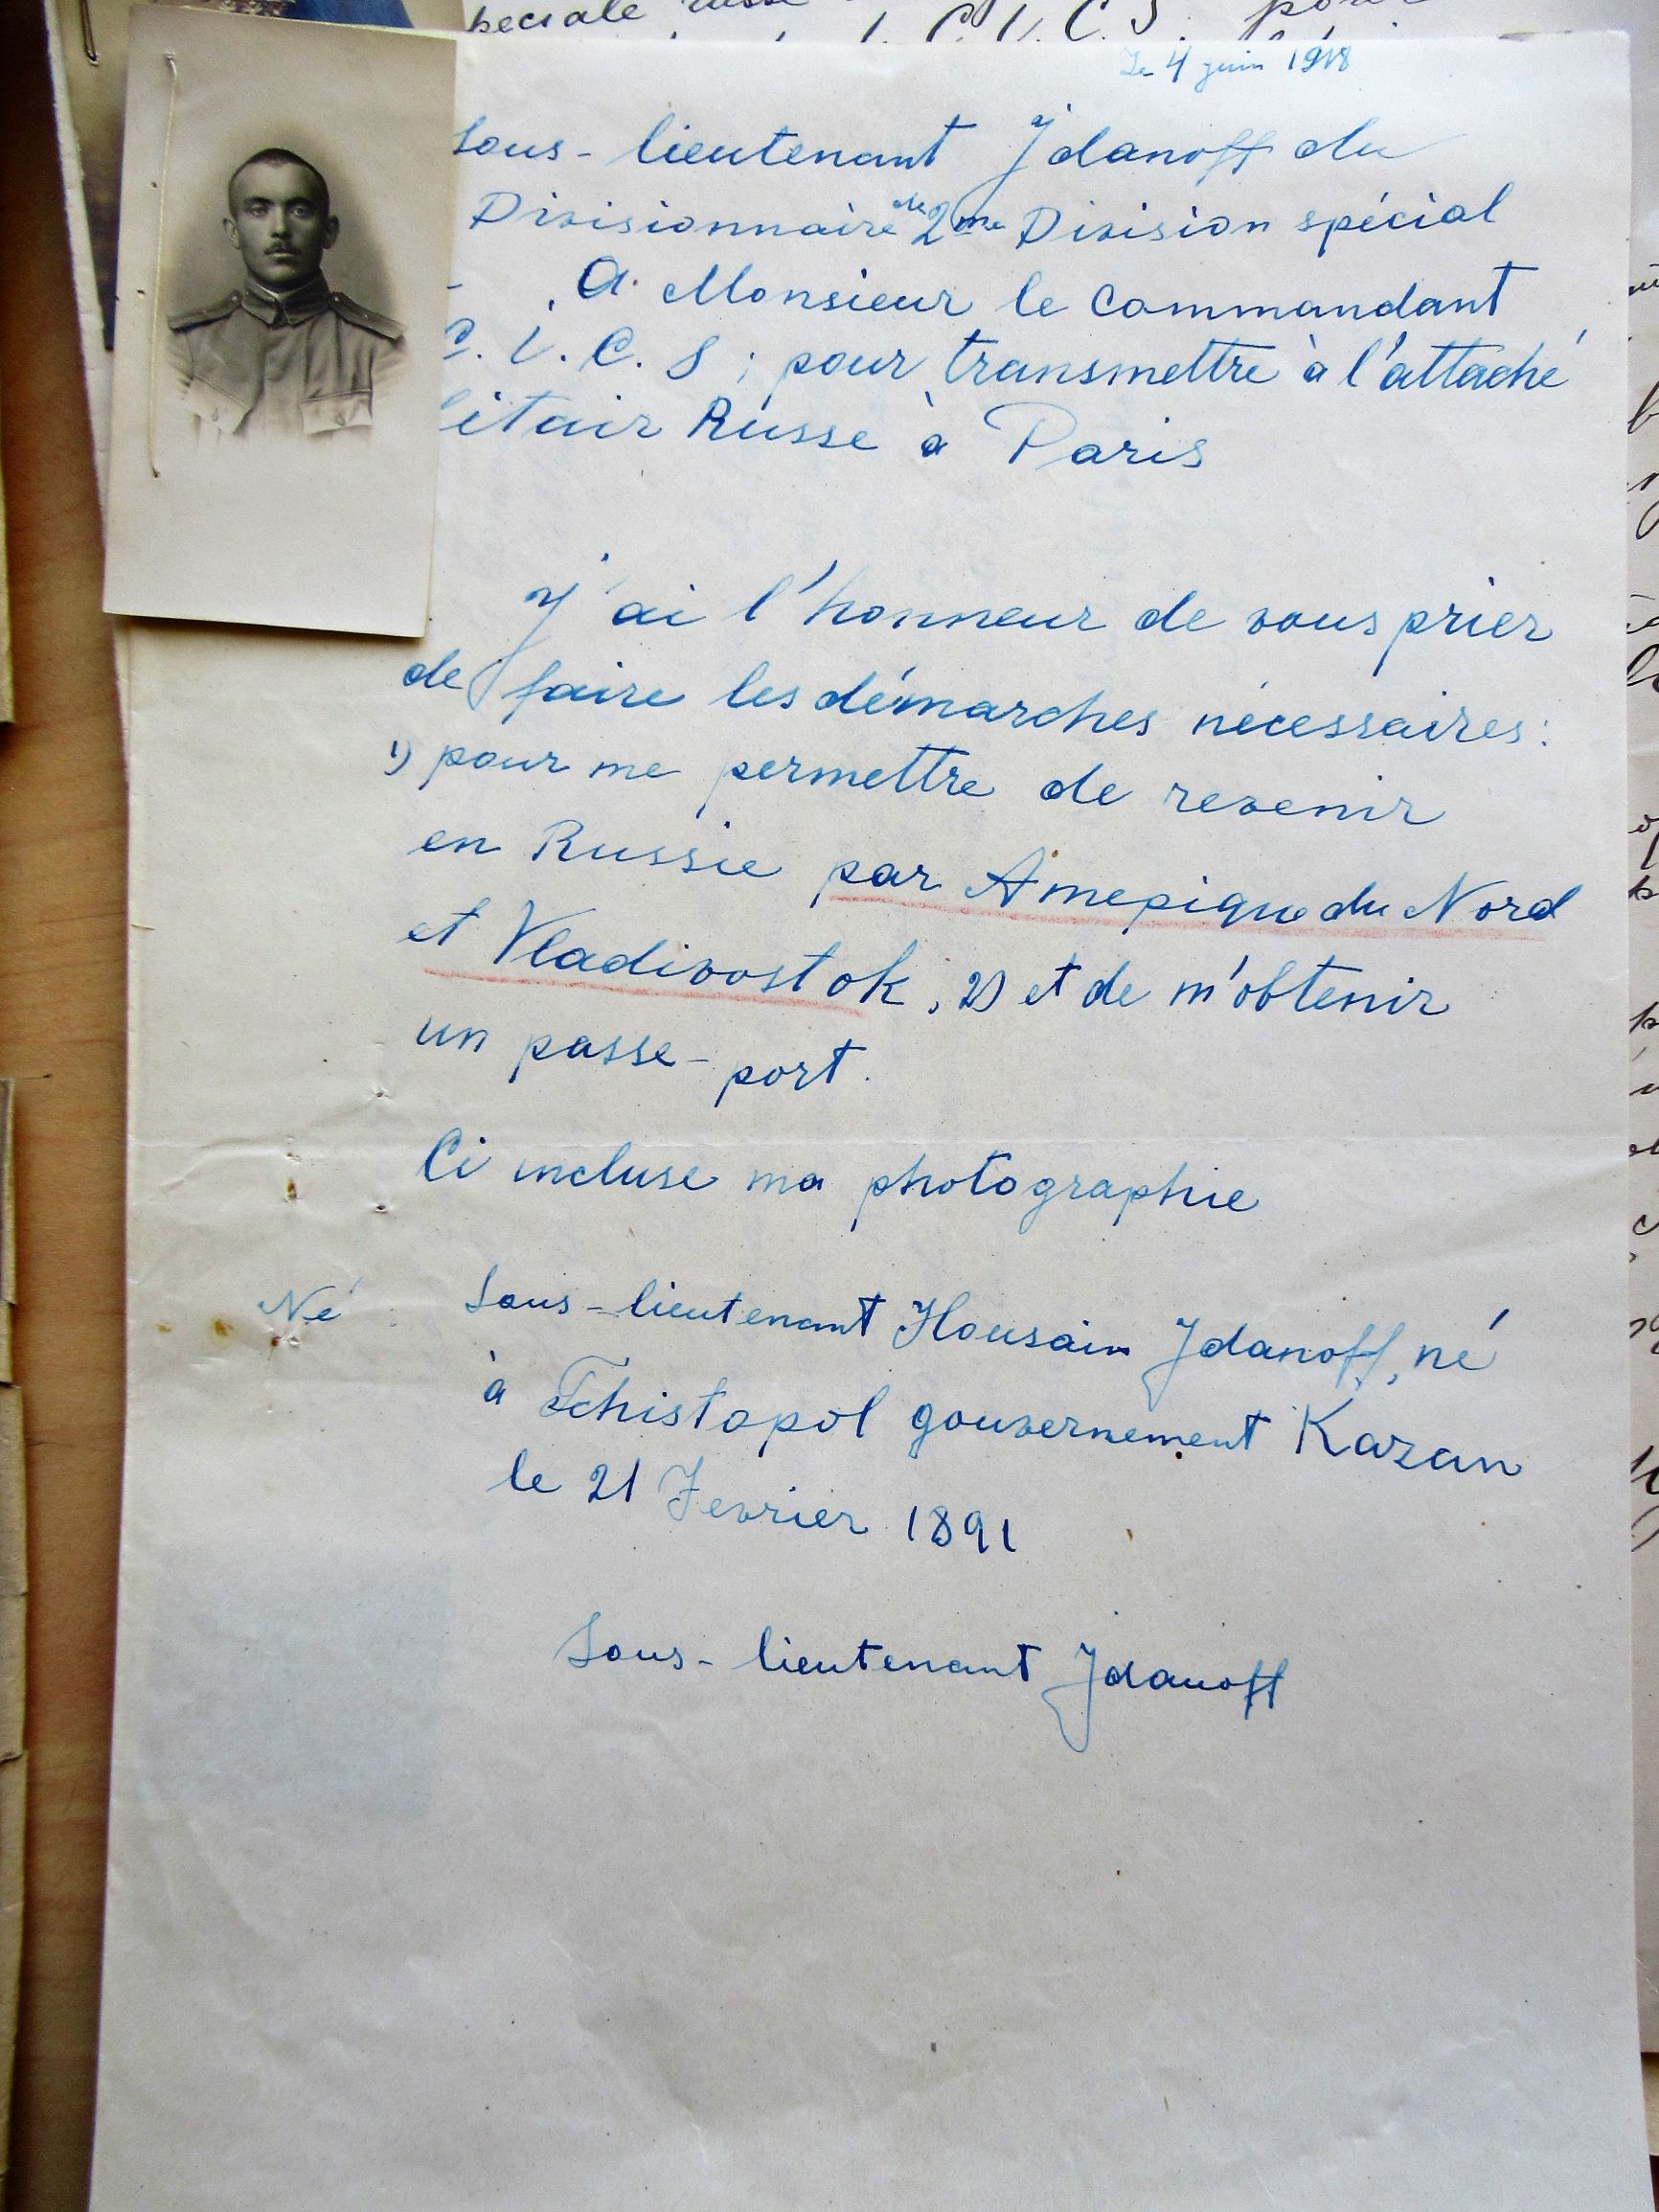 le 4 juin 1918
Sous-lieutenant Jdanoff du
Divisionnaire de 2me Division spécial
A Monsieur le Commandant
C. I. C. S; pour transmettre à l'attaché
litair Russe à Paris
J'ai l'honneur de vous prier
de faire les démarches nécessaires:
1) pour me permettre de revenir
en Russie par Amepique du Nord
et Vladivostok, 2) et de m'obtenir
un passe-port.
Ci incluse ma photographie
Né
Sous-lieutenant Housain Jdanoff, né
à Tchistopol gouvernement Kazan
le 21 Fevrier 1891
Sous-lieutenant Jdanoff